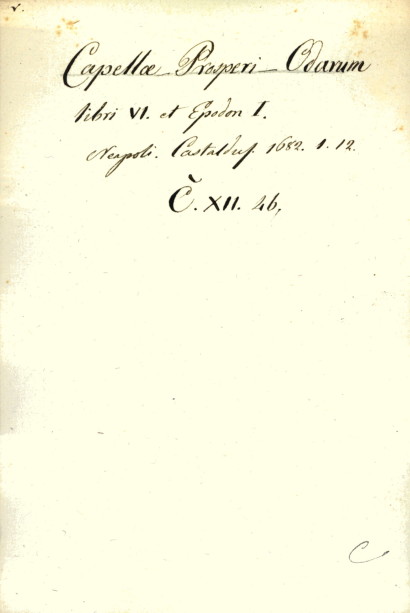 v.
Capellæ Prosperi Odarum
libri VI. et Epodon I.
Neapoli. Castalduſ. 1682. 1. 12.
Č. XII. 46,
C